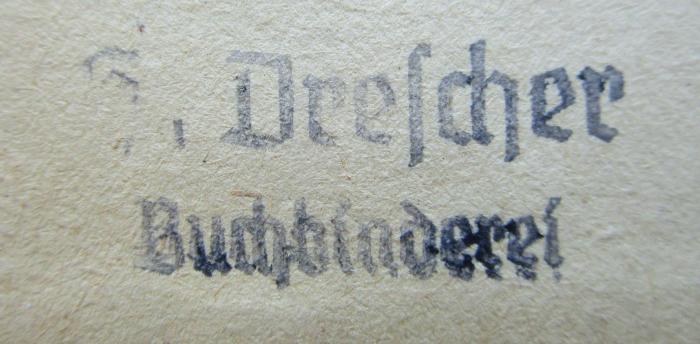 Drescher
Buchbinderei